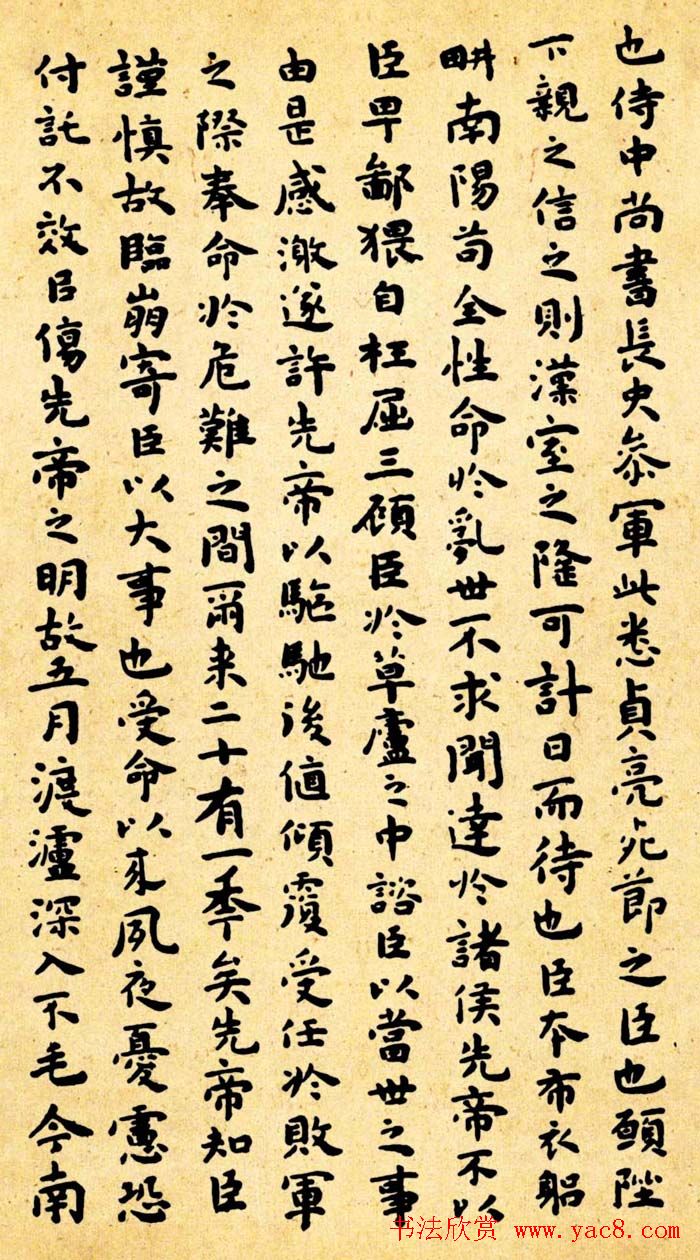 也侍中尚書長史叅軍此悉貞亮死節之臣也願陛
下親之信之則漢室之隆可計日而待也臣本布衣躬
畊南陽苟全性命於亂世不求聞達於諸侯先帝不以
臣卑鄙猥自枉屈三顧臣於草廬之中諮臣以當世之事
由是感激遂許先帝以驅馳後值傾覆受任於敗軍
之際奉命於危難之間爾来二十有一季矣先帝知臣
謹慎故臨崩寄臣以大事也受命以来夙夜憂慮恐
付託不效㠯傷先帝之明故五月渡瀘深入不毛今南
书法欣赏 www.yac8.com